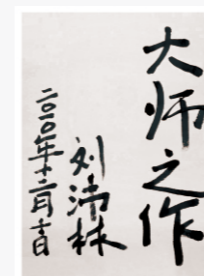 大师之作
刘沛林
二〇一〇年十二月吉日